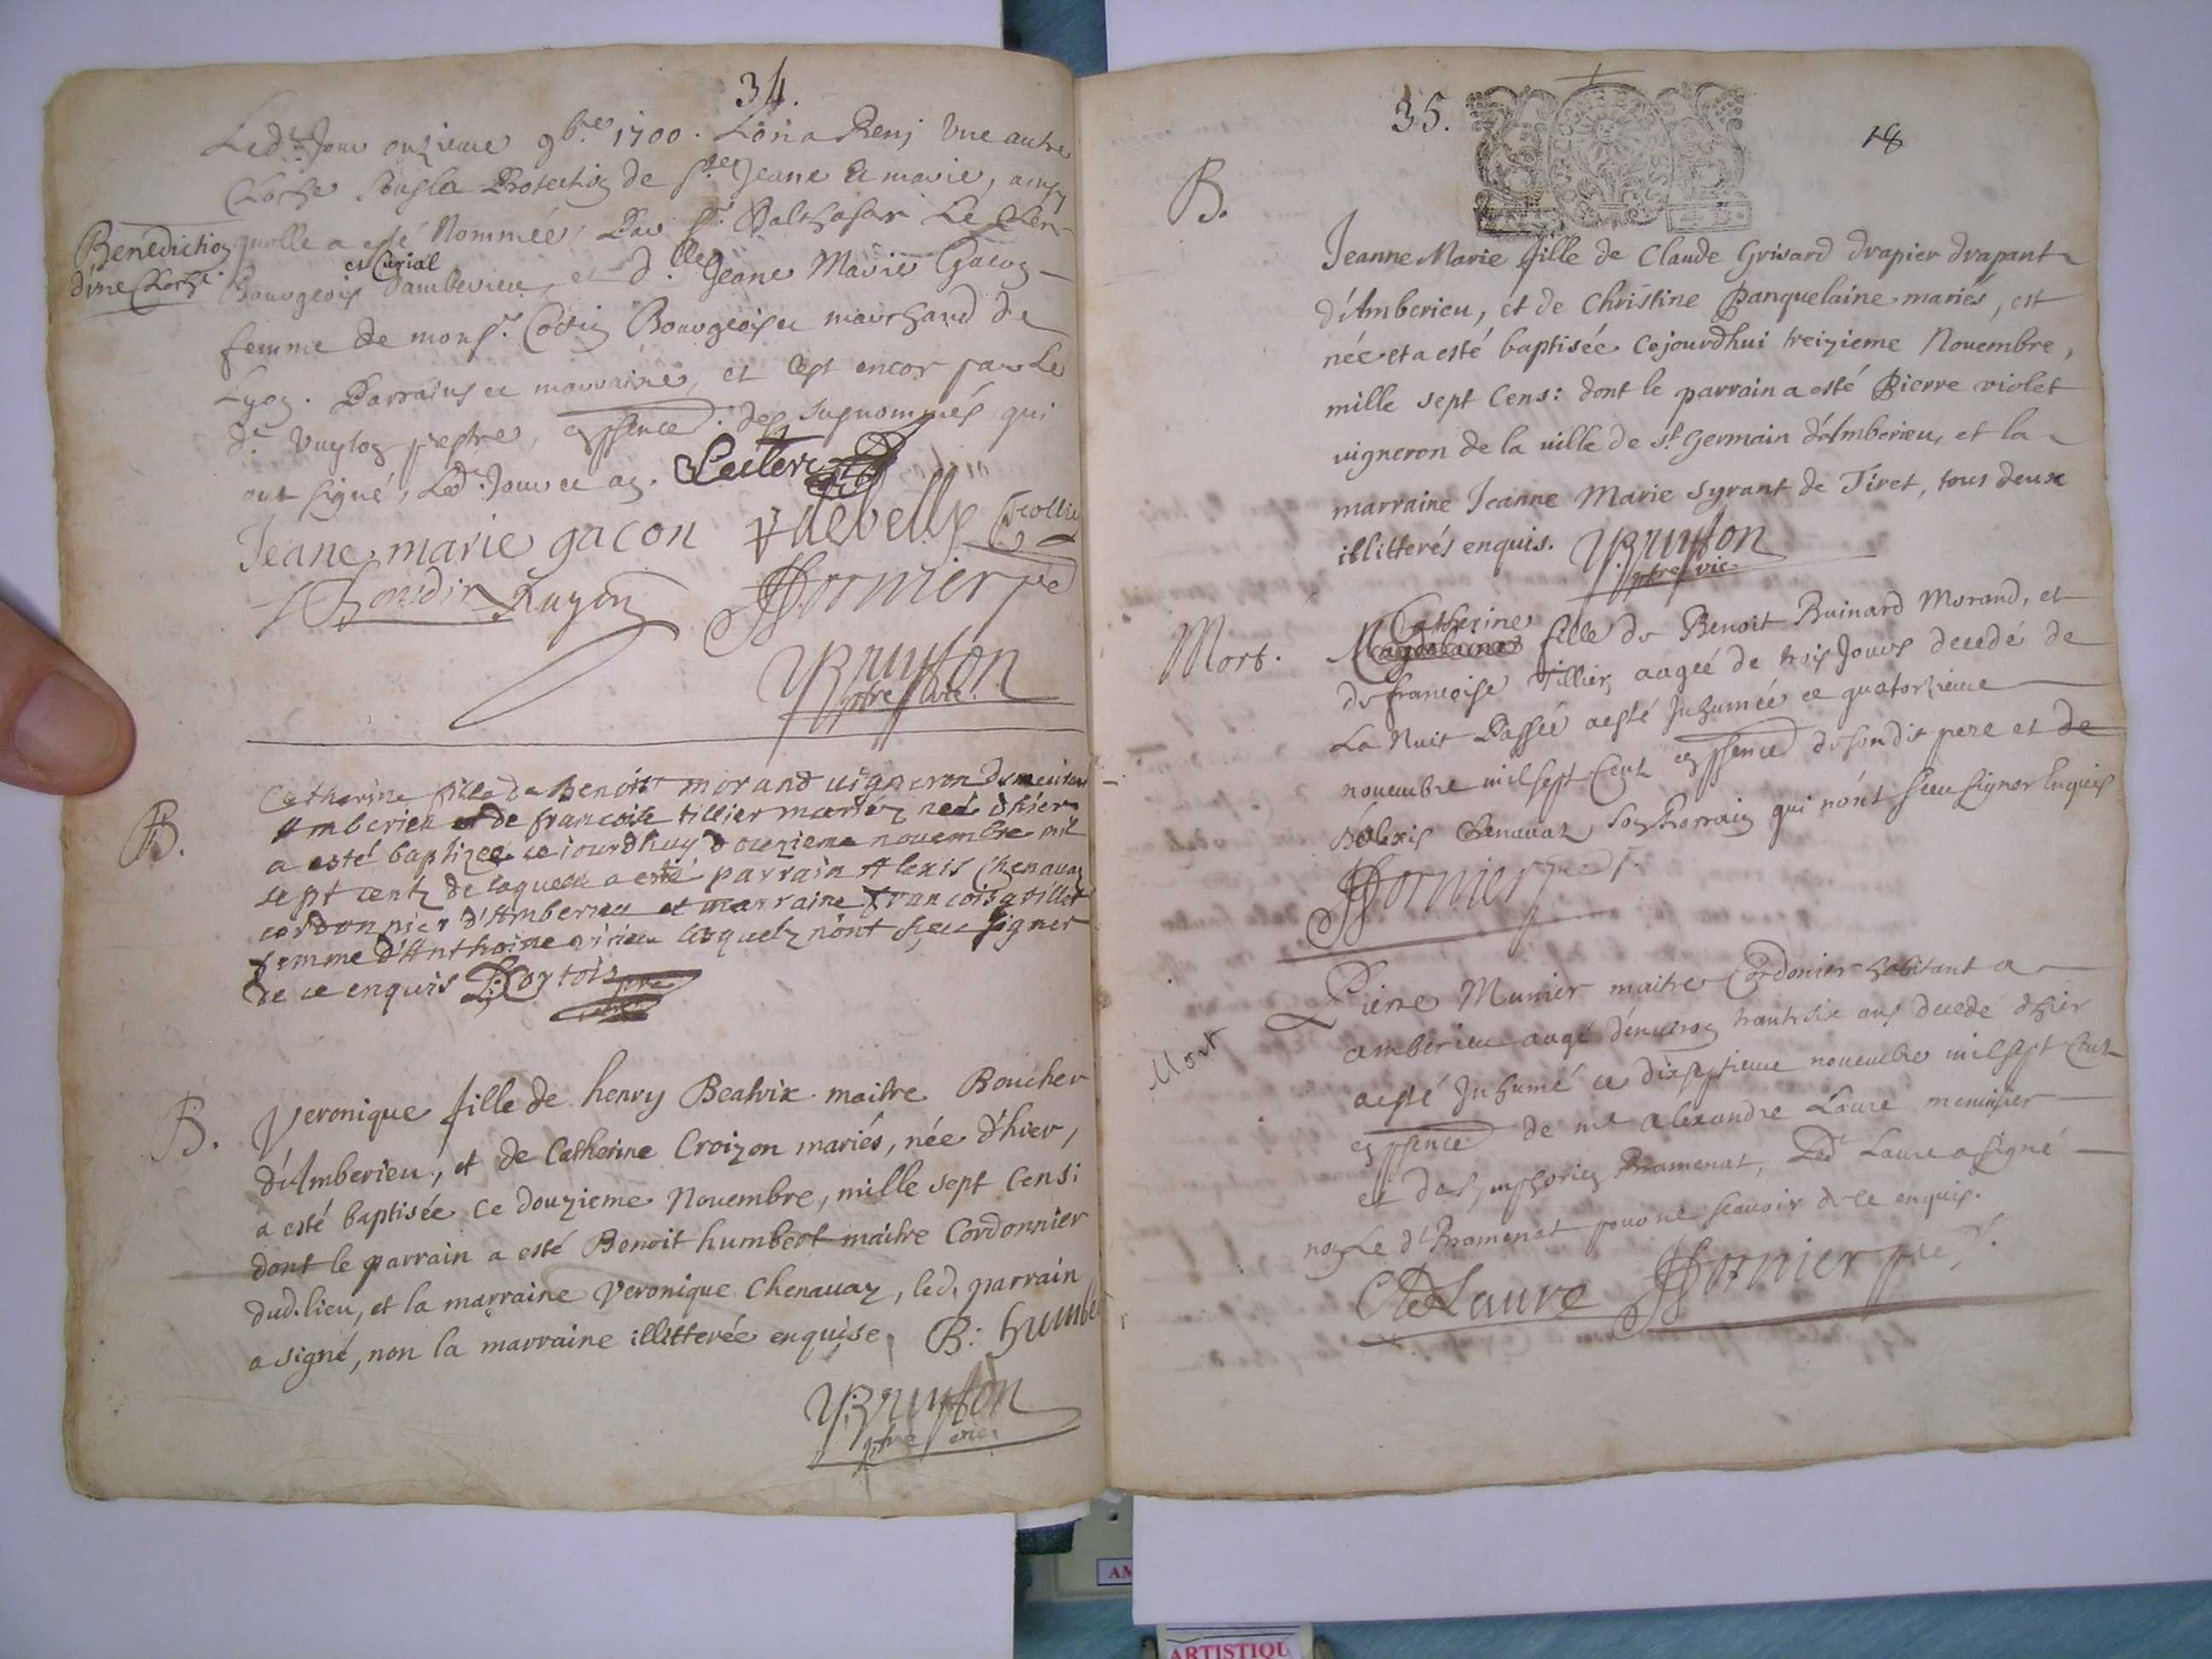 34.
Led.t Jour onzieme 9bre 1700. Lon a Beni Une autre
Cloche sous la Protection de Stes Jeane et marie, ainsy
Benediction
d'une Cloche
quelle a esté Nommée, Par Sr. Balthasar Le Clerc
et Curial
Bourgeois d'amberieu, et d.lle Jeane Marie Gacon
femme de monsr. Bourgeois et marchand de
Lyon. Parrains et marraine, et c'est encor par le
dt. Vuyton prestre, en psence des susnommés qui
ont signé, Led. Jour et an. Leclerc
Jeane marie gacon
Dornier pre
Bruyton
ptre vic.
B.
Catherine fille de Benoist morand vigneron demeurant
Amberieu et de francoise tillier mariez neé dhier
a esté baptizeé ce jourdhuy douzieme novembre mil
sept centz de laquelle a esté parrain Alexis Chenavaz
cordonnier d'Amberieu et marraine francoise tillet
femme d'Anthoine lesquelz n'ont sceu signer
de ce enquis
B.
Veronique fille de henry Beatrix maitre Boucher
d'Amberieu, et de Catherine Croizon mariés, née d'hier,
a esté baptisée ce douzieme Novembre, mille sept Cens:
dont le parrain a esté Benoit humbert maitre Cordonnier
dud. lieu, et la marraine Veronique Chenavaz, led. parrain
a signé, non la marraine illitterée enquise. B: humbe
Bruyton
ptre vic.
35.
18
B.
Jeanne Marie fille de Claude Grisard drapier drapant
d'Amberieu, et de Christine Panquelaine mariés, est
née et a esté baptisée cejourdhui treizieme Novembre,
mille sept Cens: dont le parrain a esté Pierre violet
vigneron de la ville de st. Germain d'Amberieu, et la
marraine Jeanne Marie Syrant de Tiret, tous deux
illitterés enquis. Bruyton
ptre vic.
Mort.
Catherine
Magdelaine fille de Benoit Buinard Morand, et
de francoise tillier aageé de trois Jours decedé de
La Nuit Passée a esté Inhumée ce quatorzieme
novembre mil sept Cent en psence de sondit pere et de
Alexis Chenavaz son Parrain qui n'ont sceu signer Enquis
Dornier pre
Mort
Pierre Munier maitre Cordonier habitant a
amberieu aagé d'environ trante six ans decedé dhier
a esté Inhumé ce dixseptieme novembre mil sept Cent
en psence de me alexandre Laure menuisier
et de Symphorien Pramenat, Led Laure a signé
non Le dt Pramenat pour ne scavoir de ce enquis.
Laure Dornier pre
AM
ARTISTIQU